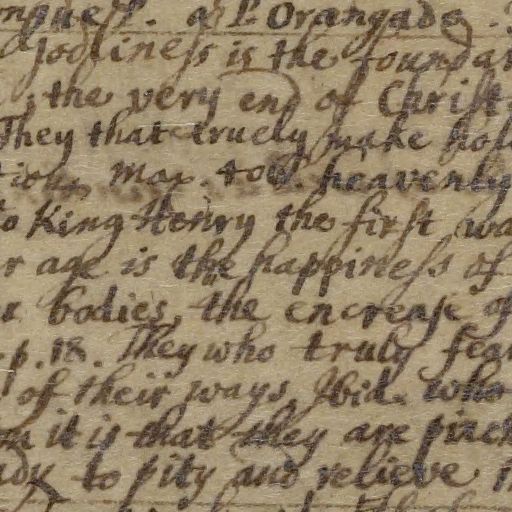 Orangado
is the foundat
; the very end of Christ
They that truely make hol
heavenly
to King Henry the first wa
r age is the happiness of
r bodies, the encrease of
p. 18. They who truly fear
of their ways Ibid. who
it is that they are pinch
ady to pity and relieve